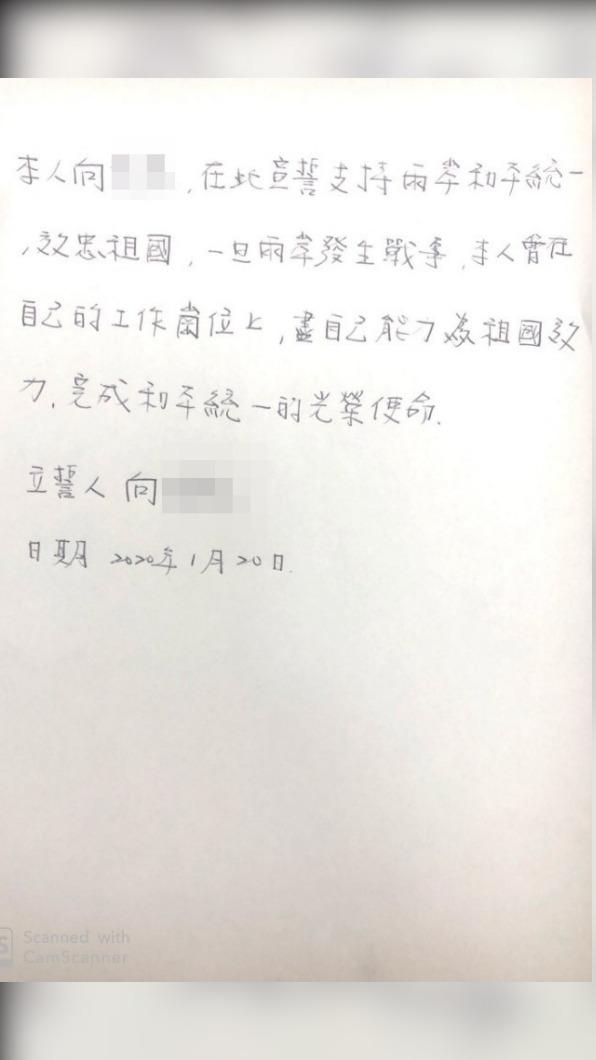 本人向 ,在此宣誓支持兩岸和平統一
,效忠祖國,一旦兩岸發生戰爭,本人會在
自己的工作崗位上,盡自己能力為祖國效
力,完成和平統一的光榮使命.
立誓人 向
日期 2020年1月20日.
Scanned with
CamScanner